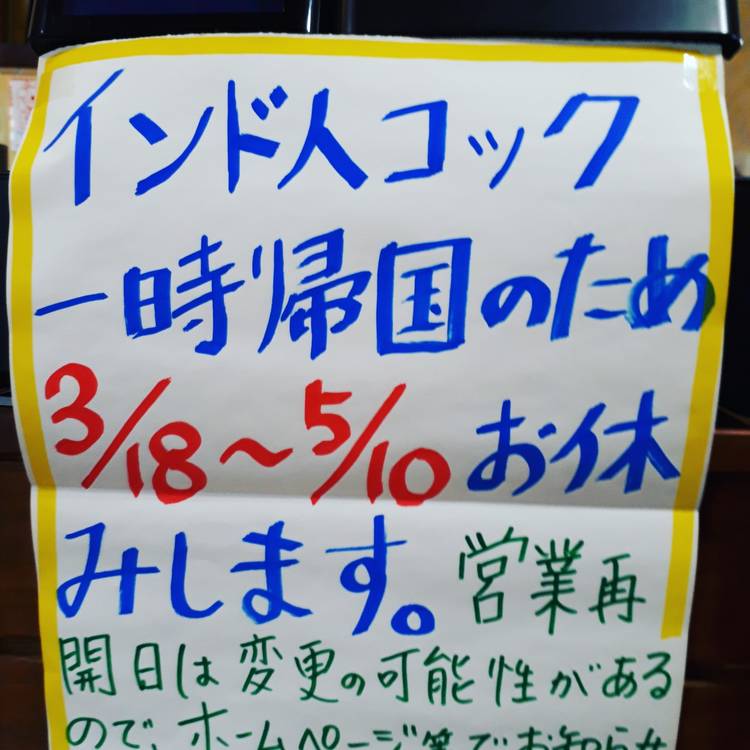 インド人コック
一時帰国のため
3/18～5/10お休
みします。営業再
開日は変更の可能性がある
ので、ホームページ等でお知らせ